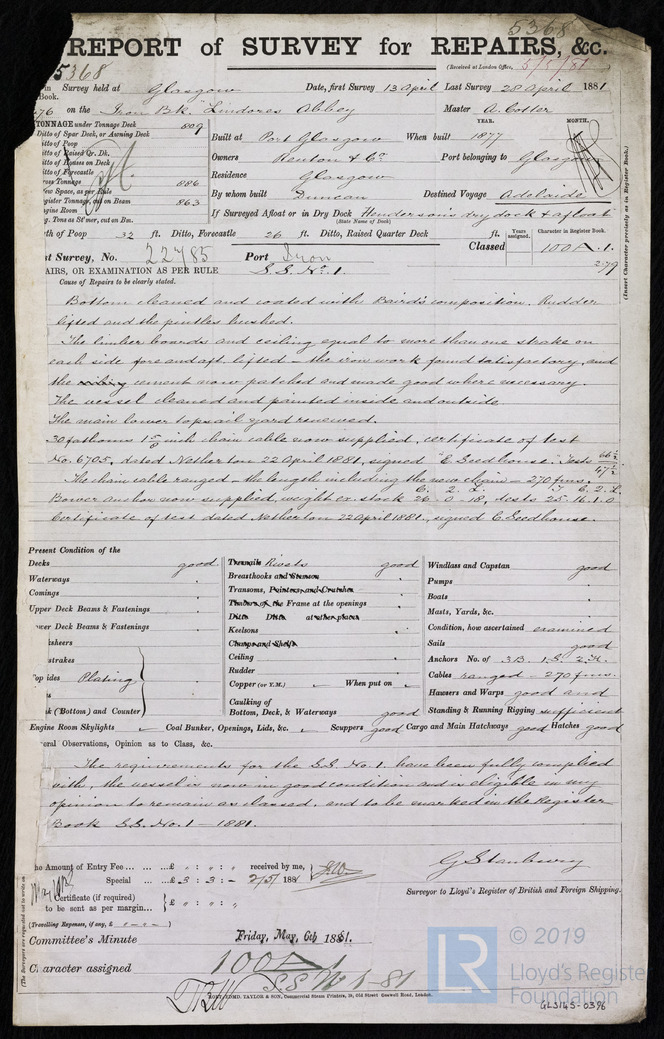 5368
REPORT of SURVEY for REPAIRS, &c.
5368
(Received at London Office, 5/5/81
in Survey held at Glasgow Date, first Survey 13 April Last Survey 28 April 1881
Book.
76 on the Iron Bk. "Lindores Abbey Master A. Cotter
TONNAGE under Tonnage Deck 809
Ditto of Spar Deck, or Awning Deck
Ditto of Poop
Ditto of Raised Qr. Dk.
Ditto of Houses on Deck
Ditto of Forecastle
Gross Tonnage 886
Crew Space, as per Rule
Register Tonnage, cut on Beam 863
Engine Room
Reg. Tons as St'mer, cut on Bm.
YEAR. MONTH.
Built at Port Glasgow When built 1877
Owners Renton & Co. Port belonging to Glasgow
Residence Glasgow
By whom built Duncan Destined Voyage Adelaide
If Surveyed Afloat or in Dry Dock Henderson's dry dock & afloat
(State Name of Dock)
th of Poop 32 ft. Ditto, Forecastle 26 ft. Ditto, Raised Quarter Deck ft.
Years assigned. Character in Register Book.
Classed 100A.1.
2-79
(Insert Character precisely as in Register Book.)
st Survey, No. 22785 Port Iron
AIRS, OR EXAMINATION AS PER RULE S.S. No. 1.
Cause of Repairs to be clearly stated.
Bottom cleaned and coated with Baird's composition. Rudder
lifted and the pintles bushed.
The limber boards and ceiling equal to more than one strake on
each side fore and aft, lifted - the iron work found satisfactory, and
the cement now patched and made good where necessary.
The vessel cleaned and painted inside and outside
The main lower topsail yard renewed.
30 fathoms 1 5/8 inch chain cable now supplied, certificate of test
No. 6705, dated Netherton 22 April 1881, signed "E Seedhouse". Tests 66 1/2 / 47 1/2
The chain cable ranged - the length including the new chains = 270 fms.
C. Q. L. T. C. Q. L.
Bower anchor now supplied, weight ex. stock 26-0-18, tests 25.16.1.0
Certificate of test dated Netherton 22 April 1881, signed E. Seedhouse.
Present Condition of the
Decks good
Waterways "
Comings "
Upper Deck Beams & Fastenings "
Lower Deck Beams & Fastenings "
ksheers
strakes
Topsides Plating "
k (Bottom) and Counter
Treenails Rivets good
Breasthooks and Stemson "
Transoms, Pointers and Crutches "
Timbers of the Frame at the openings "
Ditto Ditto at other places
Keelsons "
Clamps and Shelfs
Ceiling "
Rudder "
Copper (or Y.M.) When put on
Caulking of
Bottom, Deck, & Waterways good
Windlass and Capstan good
Pumps "
Boats "
Masts, Yards, &c. "
Condition, how ascertained examined
Sails good
Anchors No. of 3B. 1S. 2K.
Cables ranged - 270 fms.
Hawsers and Warps good and
Standing & Running Rigging sufficient
Engine Room Skylights Coal Bunker, Openings, Lids, &c. Scuppers good Cargo and Main Hatchways good Hatches good
eral Observations, Opinion as to Class, &c.
The requirements for the S.S. No. 1. have been fully complied
with, the vessel is now in good condition and is eligible in my
opinion to remain as classed, and to be marked in the Register
Book S.S. No. 1 - 1881.
he Amount of Entry Fee ... £ " : " : " received by me,
Special ... £ 3 : 3 : - 2/5/ 1881
Certificate (if required)
to be sent as per margin... £ " : " : "
(Travelling Expenses, if any, £ )
G Stanbury
Surveyor to Lloyd's Register of British and Foreign Shipping.
(The Surveyors are requested not to write on
Committee's Minute Friday, May, 6th 1881.
Character assigned 100A1
S.S. No 1-81
PORT, EDMD. TAYLOR & SON, Commercial Steam Printers, Old Street Goswell Road, London.
LR © 2019
Lloyd's Register
Foundation
GLS145-0396